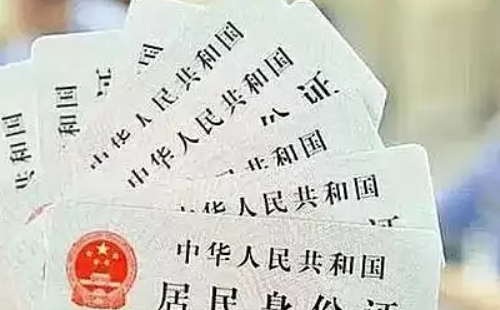 和国
证
共和国
份
中华人民共和国
中华人民共和国
份证
共和国
华人民共和国
中华人民共和国
居民身份证